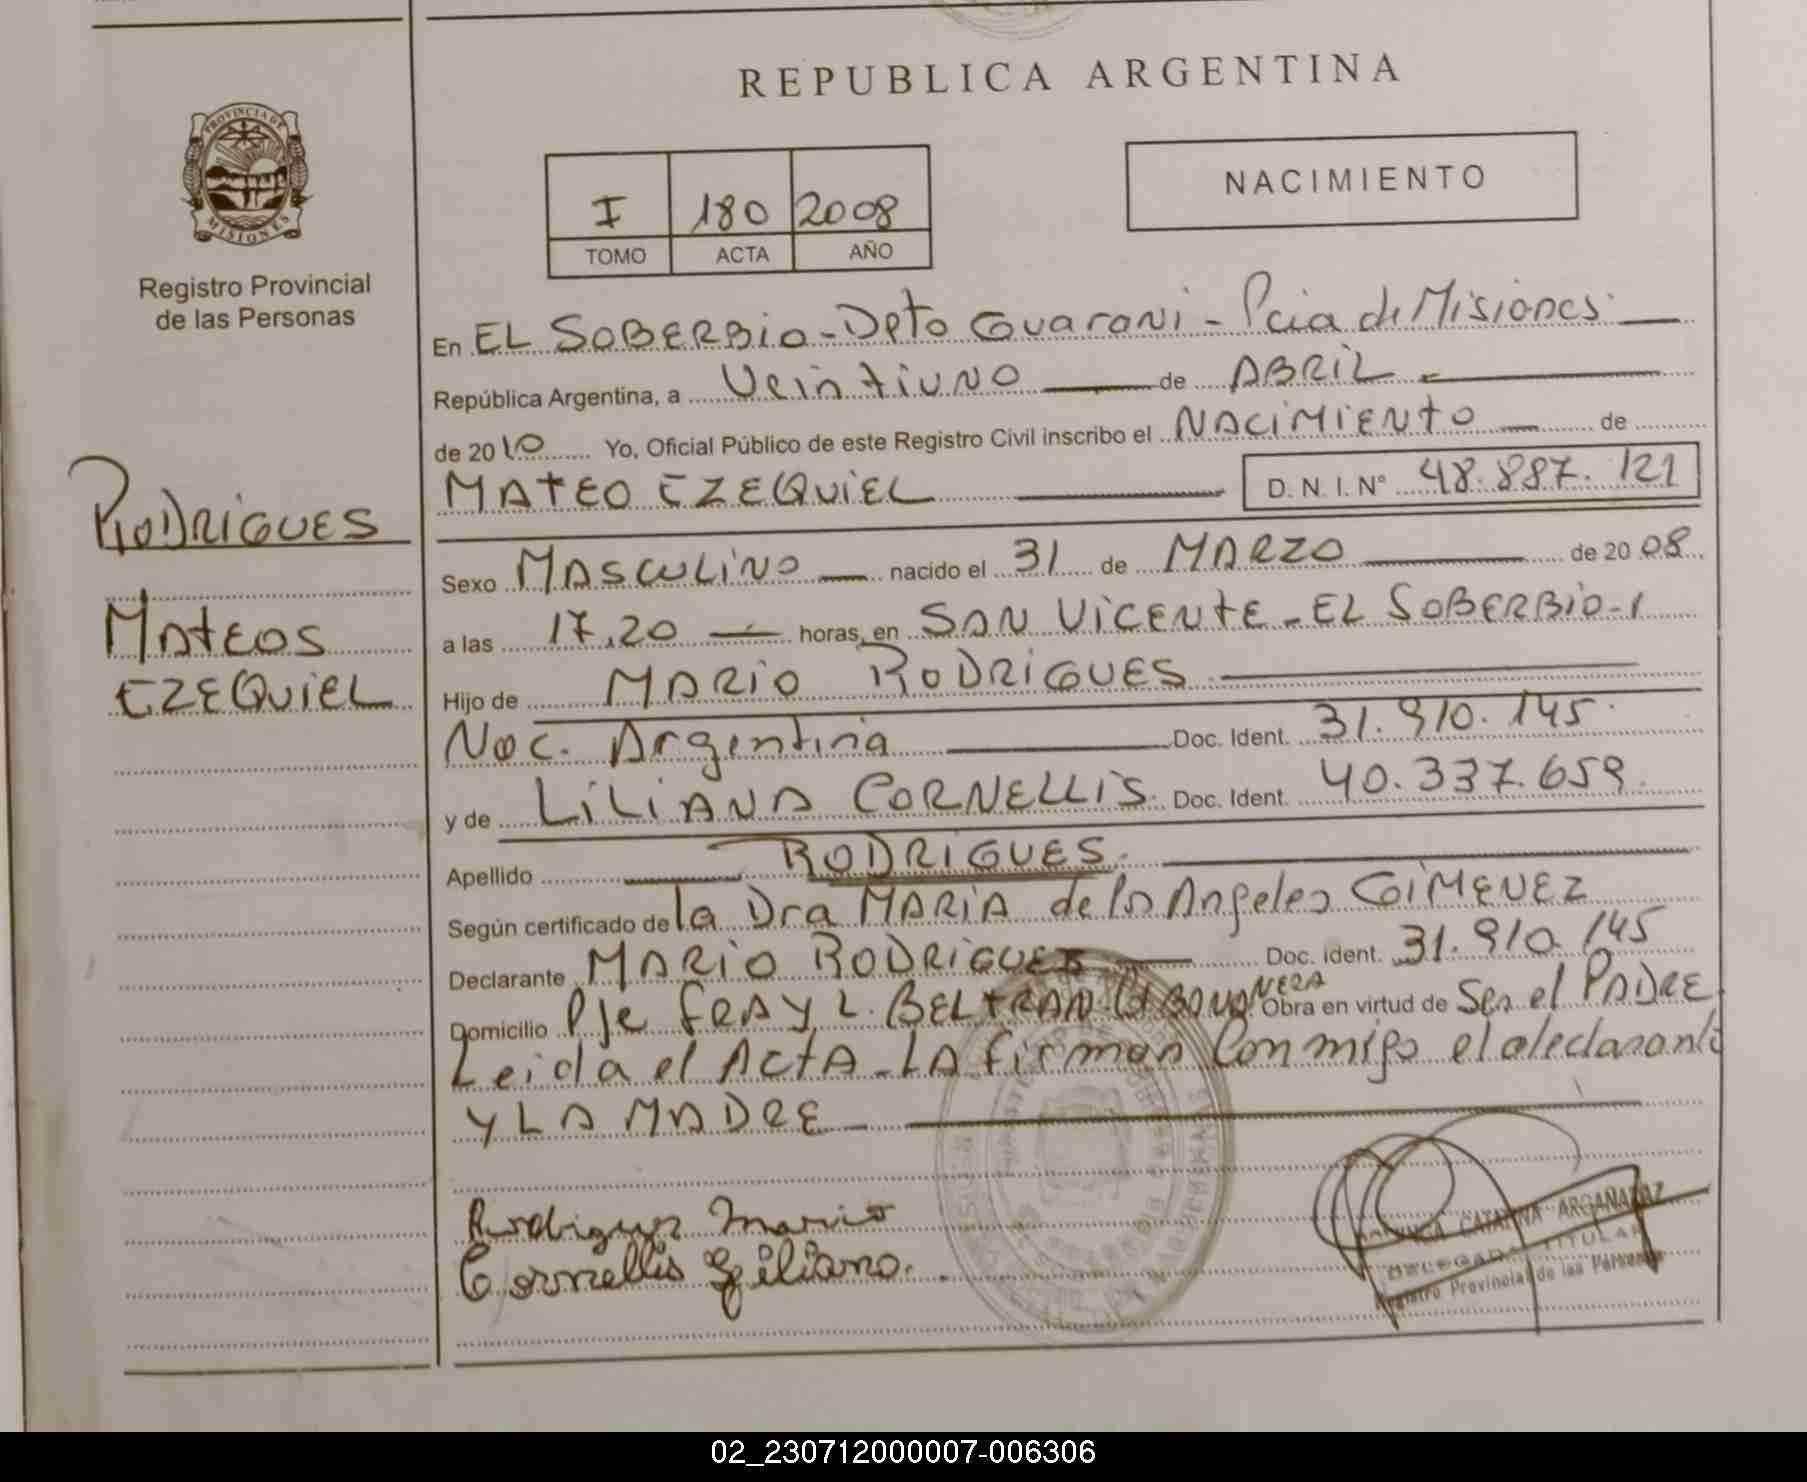 REPUBLICA ARGENTINA
PROVINCIA DE
MISIONES
Registro Provincial
de las Personas
I 180 2008
TOMO ACTA AÑO
NACIMIENTO
En EL SOBERBIO - Dpto Guarani - Pcia de Misiones
República Argentina, a Veintiuno de ABRIL
de 2010 Yo, Oficial Público de este Registro Civil inscribo el NACIMIENTO de
MATEO EZEQUIEL D. N. I. Nº 48.887.121
RODRIGUES
MATEOS
EZEQUIEL
Sexo MASCULINO nacido el 31 de MARZO de 2008
a las 17.20 horas, en SAN VICENTE - EL SOBERBIO -
Hijo de MARIO RODRIGUES
Nac. Argentina Doc. Ident. 31.910.145
y de LILIANA CORNELLIS Doc. Ident. 40.337.659
Apellido RODRIGUES
Según certificado de la Dra MARIA de los Angeles GIMENEZ
Declarante MARIO RODRIGUES Doc. ident. 31.910.145
Domicilio Pje FRAY L. BELTRAN Obra en virtud de Ser el PADRE
Leida el ActA - LA firman Conmigo el declarante
Y LA MADRE
Rodriguez Mario
Cornellis Liliana.
CATALINA ARGAÑARAZ
DELEGADA TITULAR
Registro Provincial de las Personas
02_230712000007-006306